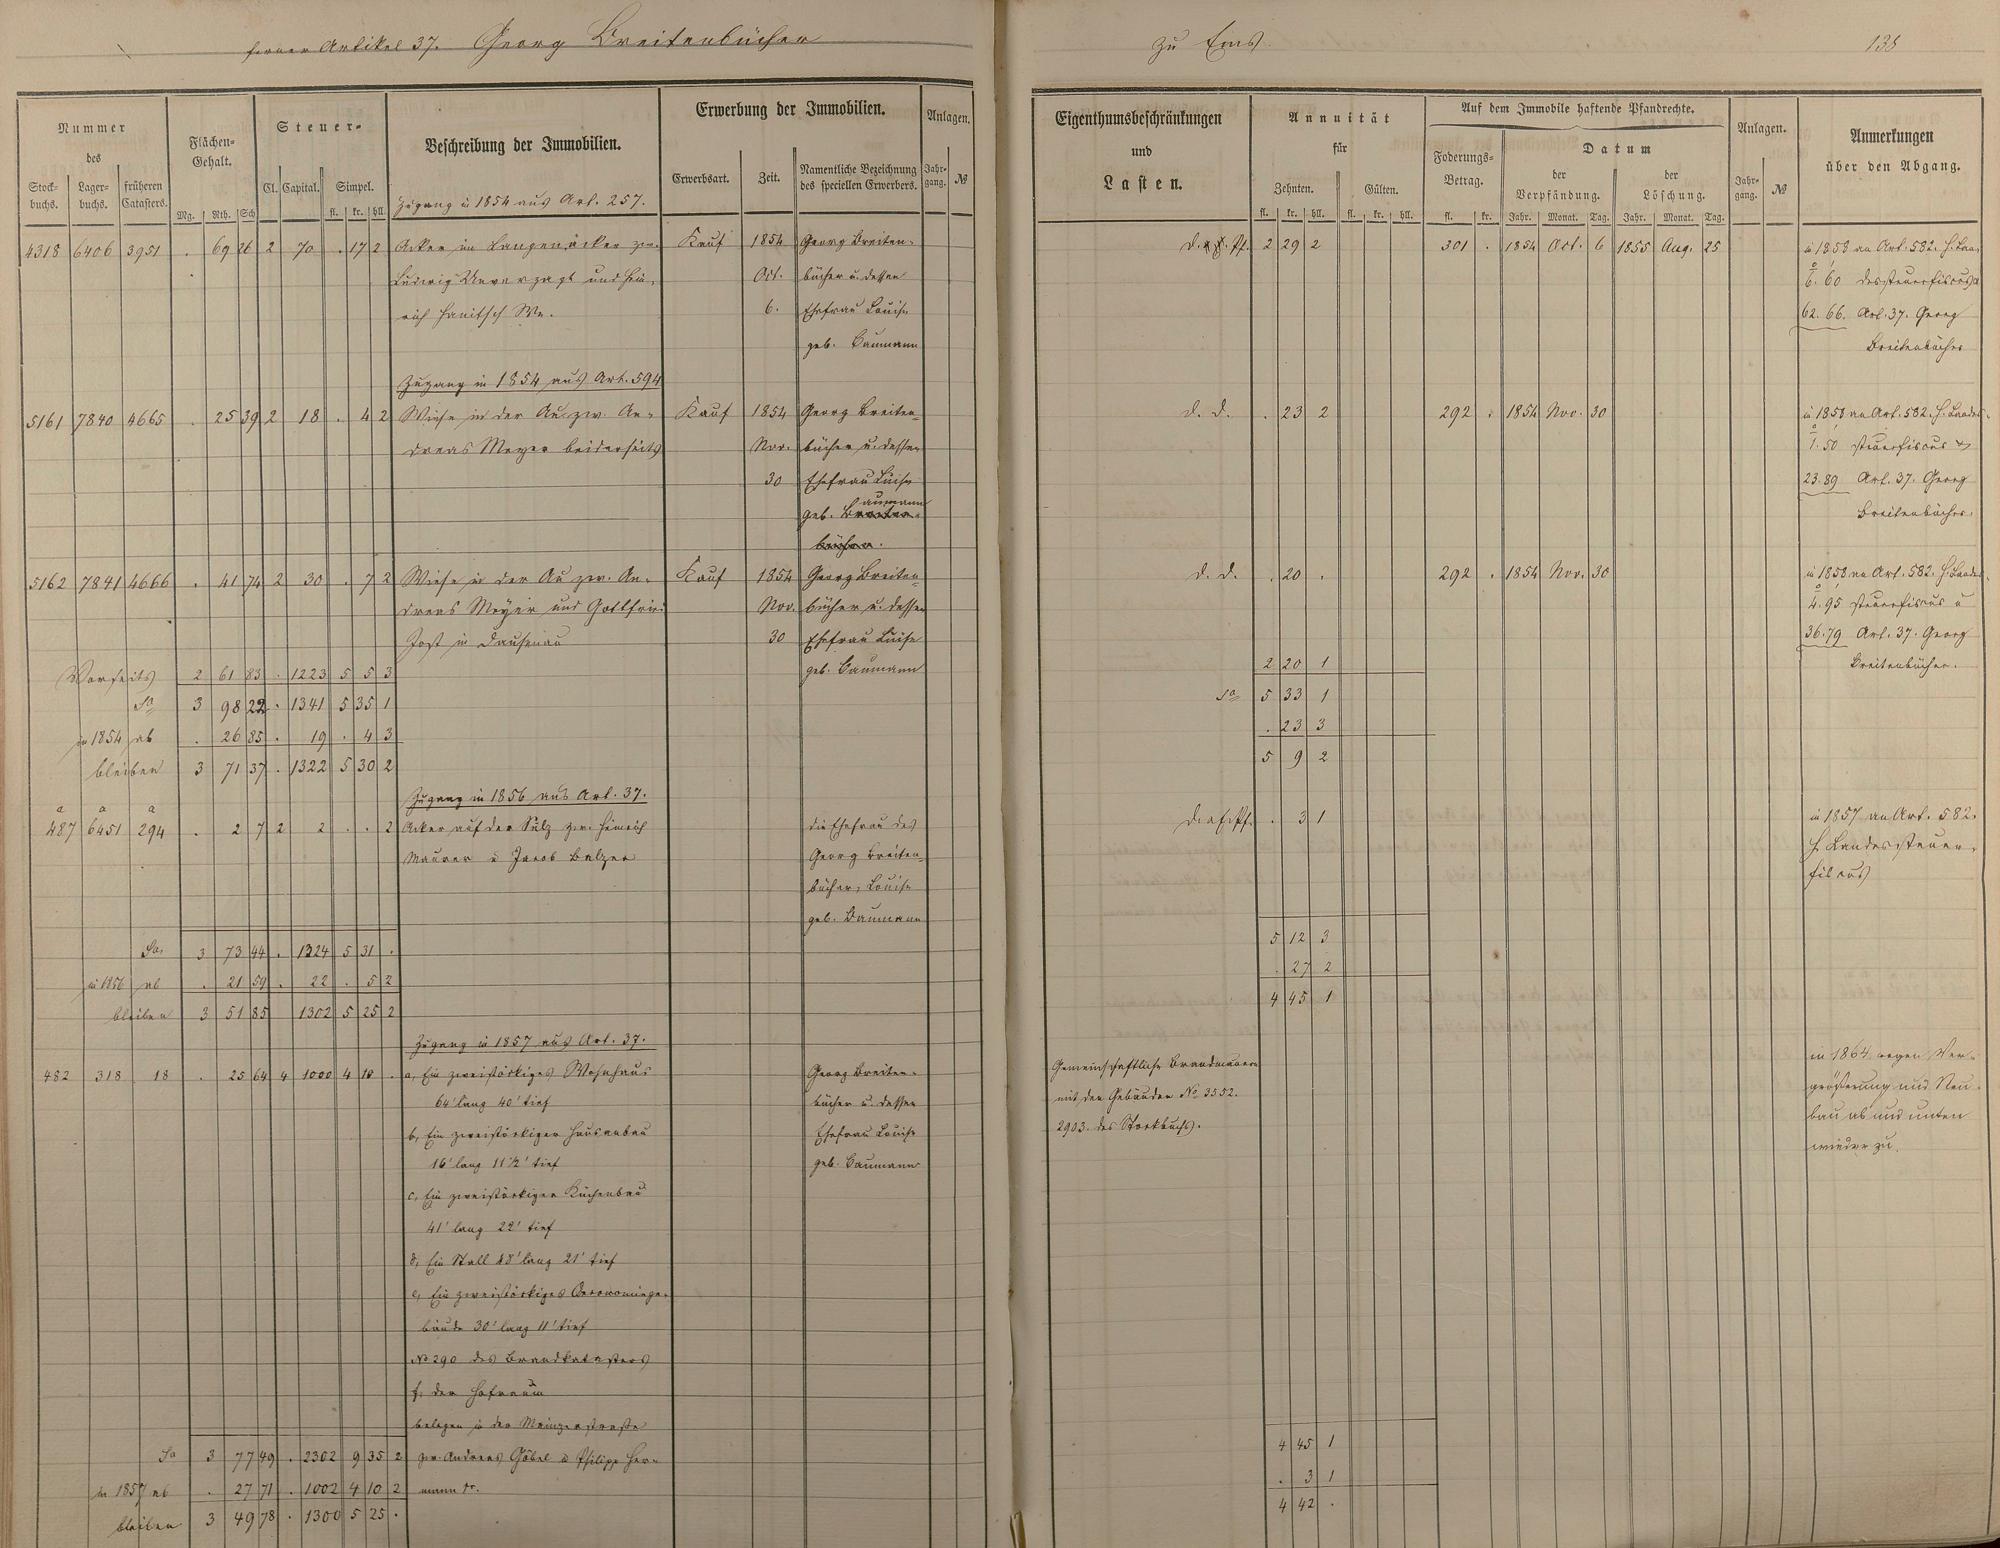 ferner Artikel 37. Georg Breitenbücher
zu Ems.
138
Nummer
des
Stock-
buchs.
Lager-
buchs.
früheren
Catasters.
Flächen-
Gehalt.
Mg. Rth. Sch.
Steuer-
Cl. Capital. Simpel.
fl. kr. hll.
Beschreibung der Immobilien.
Erwerbung der Immobilien.
Erwerbsart. Zeit.
Namentliche Bezeichnung
des speciellen Erwerbers.
Anlagen.
Jahr-
gang. №
Eigenthumsbeschränkungen
und
Lasten.
Annuität
für
Zehnten. Gülten.
fl. kr. hll. fl. kr. hll.
Auf dem Immobile haftende Pfandrechte.
Foderungs-
Betrag.
fl. kr.
Datum
der
Verpfändung.
der
Löschung.
Jahr. Monat. Tag. Jahr. Monat. Tag.
Anlagen.
Jahr-
gang. №
Anmerkungen
über den Abgang.
Zugang in 1854 aus Art. 257.
4318 6406 3951 . 69 26 2 70 . 17 2 Acker im Langenacker zw. Kauf 1854 Georg Breiten-
Ludwig Unverzagt und Hein- Oct. bücher u. dessen
rich Hanitsch We. 6. Ehefrau Louise
geb. Baumann
2 29 2 301 . 1854 Oct. 6 1855 Aug. 25
in 1858 an Art. 582. H. Lan-
6. 60 dessteuerfiscus
62. 66. Art. 37. Georg
Breitenbücher
Zugang in 1854 aus Art. 594
5161 7840 4665 . 25 39 2 18 . 4 2 Wiese in der Au zw. An- Kauf 1854 Georg Breiten-
dreas Meyer beiderseits Nov. bücher u. dessen
30 Ehefrau Luise
aumann
geb. Breiten-
bücher.
d. d. . 23 2 292 . 1854 Nov. 30
in 1858 an Art. 582. H. Landes-
1. 50 steuerfiscus
23. 89 Art. 37. Georg
Breitenbücher.
5162 7841 4666 . 41 74 2 30 . 7 2 Wiese in der Au zw. An- Kauf 1854 Georg Breiten-
dreas Meyer und Gottfried Nov. bücher u. dessen
Jost in Dausenau 30 Ehefrau Luise
geb. Baumann
d. d. . 20 . 292 . 1854 Nov. 30
in 1858 an Art. 582. H. Landes-
4. 95 steuerfiscus u
36. 79 Art. 37. Georg
Breitenbücher.
Vorseits 2 61 83 . 1223 5 5 3
2 20 1
Sa 3 98 22 . 1341 5 35 1
Sa 5 33 1
in 1854 ab . 26 85 . 19 . 4 3
. 23 3
bleiben 3 71 37 . 1322 5 30 2
5 9 2
Zugang in 1856 aus Art. 37.
a a a
487 6451 294 . 2 7 2 2 . . 2 Acker auf der Sülz zw. Heinrich die Ehefrau des
Maurer u Jacob Balzer Georg Breiten-
bücher, Louise
geb. Baumann
. 3 1
in 1857 an Art. 582.
H. Landessteuer-
fiscus
Sa. 3 73 44 . 1324 5 31 .
5 12 3
in 1856 ab . 21 59 . 22 . 5 2
. 27 2
bleiben 3 51 85 1302 5 25 2
4 45 1
Zugang in 1857 aus Art. 37.
482 318 18 . 25 64 4 1000 4 10 . a, Ein zweistöckiges Wohnhaus Georg Breiten-
64' lang 40' tief bücher u. dessen
b, Ein zweistöckiger Hausanbau Ehefrau Louise
16' lang 11 1/2' tief geb. Baumann
c, Ein zweistöckiger Küchenbau
41' lang 22' tief
d, Ein Stall 48' lang 21' tief
e, Ein zweistöckiges Oeconomiege-
bäude 30' lang 11' tief
No 290 des Brandkatasters
f, der Hofraum
belegen in der Mainzerstraße
zw. Andreas Göbel u Philipp Her-
mann &c.
Gemeinschaftliche Brandmauern
mit den Gebäuden No 3552.
2903. des Stockbuchs.
in 1864 wegen Ver-
größerung und Neu-
bau ab und unten
wieder zu.
Sa 3 77 49 . 2302 9 35 2
4 45 1
in 1857 ab . 27 71 . 1002 4 10 2
. 3 1
bleiben 3 49 78 . 1300 5 25 .
4 42 .